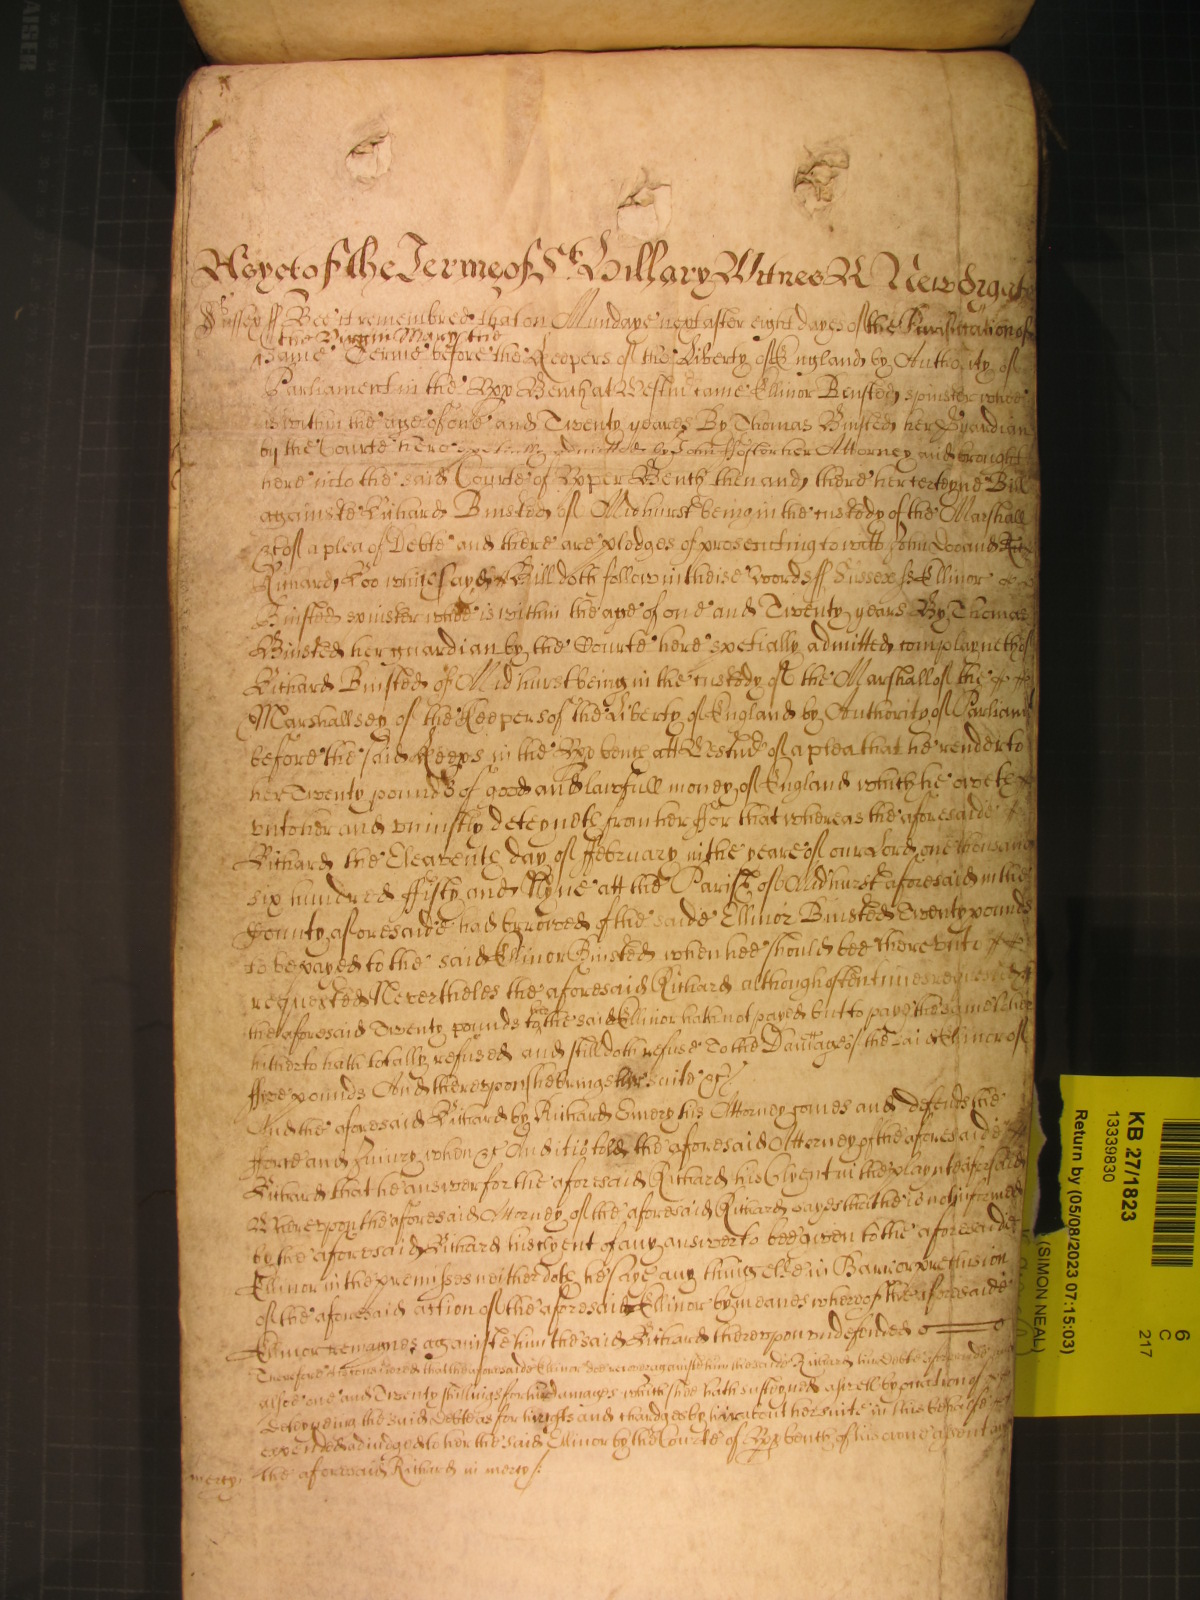 As yet of the Terme of St Hillary Witnes R Newdigate
Sussex ss Bee it remembred that on Mundaye next after eight dayes of the Purification of
the Virgin Mary the
same Terme before the Keepers of the Liberty of England by Authority of
Parliament in the Upp Bench at Westm̃ came Ellinor Binsted spinster whoe
is within the age of one and Twenty yeares By Thomas Binsted her Guardian
by the Courte here specially admitted by John Foster her Attorney and brought
here into the said Courte of Upper Bench then and there her certeyne Bill
againste Richard Binsted of Midhurst being in the custody of the Marshall
&c of a plea of Debte and there are pledges of prosecuting to witt John Doo and
Richard Roo which sayd Bill doth follow in theise words ss Sussex ss Ellinor
Binsted spinster whoe is within the age of one and Twenty years By Thomas
Binsted her guardian by the Courte here specially admitted complayneth of
Richard Binsted of Midhurst being in the custody of the Marshall of the
Marshallsey of the Keepers of the Liberty of England by Authority of Parliamt
before the said Keeps in the Upp bench att Westm̃ of a plea that he render to
her Twenty pounds of good and lawfull money of England which he oweth
unto her and uniustly deteyneth from her ffor that whereas the aforesaide
Richard the Eleaventh day of ffebruary in the yeare of our Lord one thousand
six hundred ffifty and Nyne att the Parish of Midhurst aforesaid in the
County aforesaide had borrowed of the saide Ellinor Binsted Twenty pounds
to be payed to the said Ellinor Binsted when hee should bee thereunto
requested Neverthelesse the aforesaid Richard although oftentimes requested
the aforesaid Twenty pounds to the said Ellinor hath not payed but to paye the same hither
hitherto hath totally refused and still doth refuse To the Damage of the said Ellinor of
ffive pounds And thereupon shee brings her suite &c
And the aforesaid Richard by Richard Emery his Attorney comes and defends the
fforce and Iniury when &c And it is told the aforesaid Attorney of the aforesaide
Richard that he answer for the aforesaid Richard his Clyent in the playnte aforesaid
Whereupon the aforesaid Attorney of the aforesaid Richard sayes that he is not informed
by the aforesaid Richard his clyent of any answer to bee given to the aforesaide
Ellinor in the premisses neither doth he saye any thing else in Barr or preclusion
of the aforesaid action of the aforesaid Ellinor by meanes whereof the aforesaide
Ellinor remaynes againste him the said Richard thereupon undefended
Therefore it is considered that the aforesaide Ellinor doe recover againste him the saide Richard her Debte aforesaide and
alsoe one and Twenty shillings for her damages which shee hath susteyned aswell by occation of
deteyneing the said Debte as for her costs and chardges by her about her suite in this behalfe
expended adiudged to her the said Ellinor by the Courte of Upp bench of his owne assent and
mercy the aforesaid Richard in mercy &c
KB 27/1823
13339830
Return by (05/08/2023 07:15:03)
(SIMON NEAL)
6
C
217